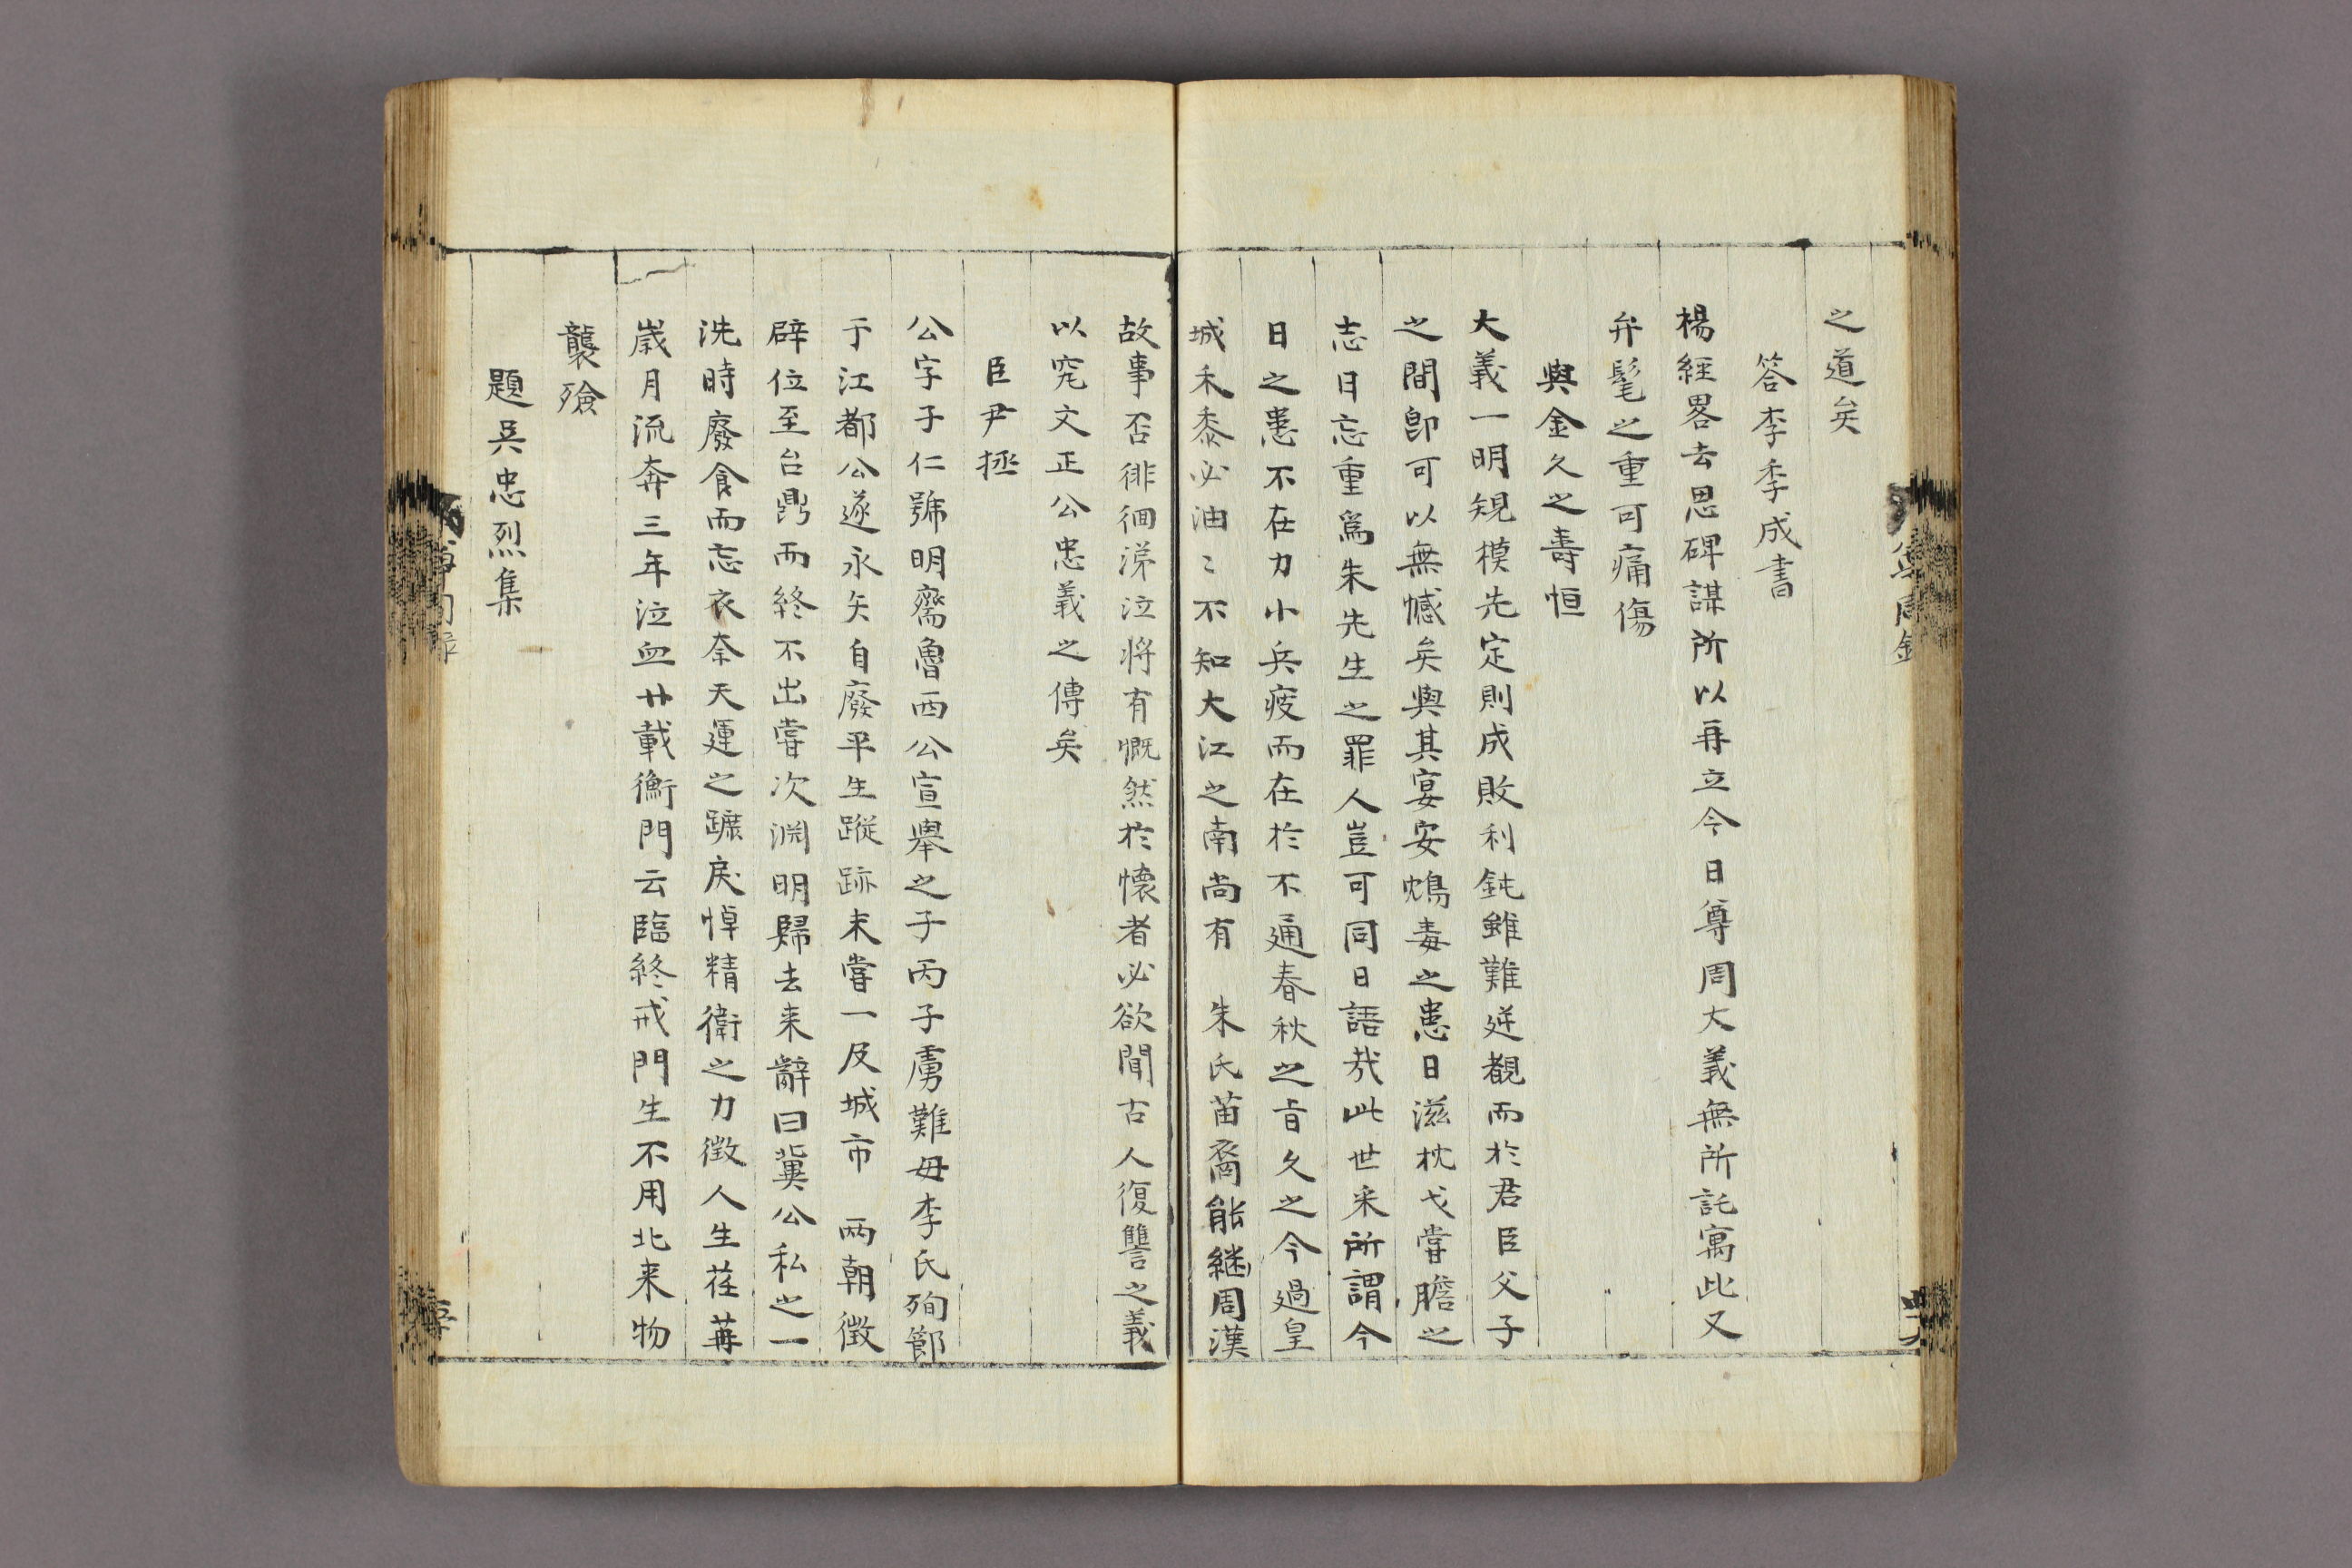 之道矣
答李季成書
楊經畧去思碑謀所以再立今日尊周大義無所託寓此又
弁髦之重可痛傷
與金久之壽恒
大義一明規模先定則成敗利鈍雖難逆覩而於君臣父子
之間卽可以無憾矣與其宴安鴆毒之患日滋枕戈嘗膽之
志日忘重爲朱先生之罪人豈可同日語哉此世采所謂今
日之患不在力小兵疲而在於不通春秋之旨久之今過皇
城禾黍必油〻不知大江之南尚有 朱氏苗裔能継周漢
故事否徘徊涕泣將有慨然於懷者必欲聞古人復讐之義
以究文正公忠義之傳矣
臣尹拯
公字子仁號明齋魯西公宣擧之子丙子虜難母李氏殉節
于江都公遂永矢自廢平生蹤跡未嘗一及城市 兩朝徵
辟位至台鼎而終不出嘗次淵明歸去来辭曰冀公私之一
洗時廢食而忘衣奈天運之蹠戾悼精衛之力微人生荏苒
歲月流奔三年泣血卄載衡門云臨終戒門生不用北来物
襲殮
題吳忠烈集